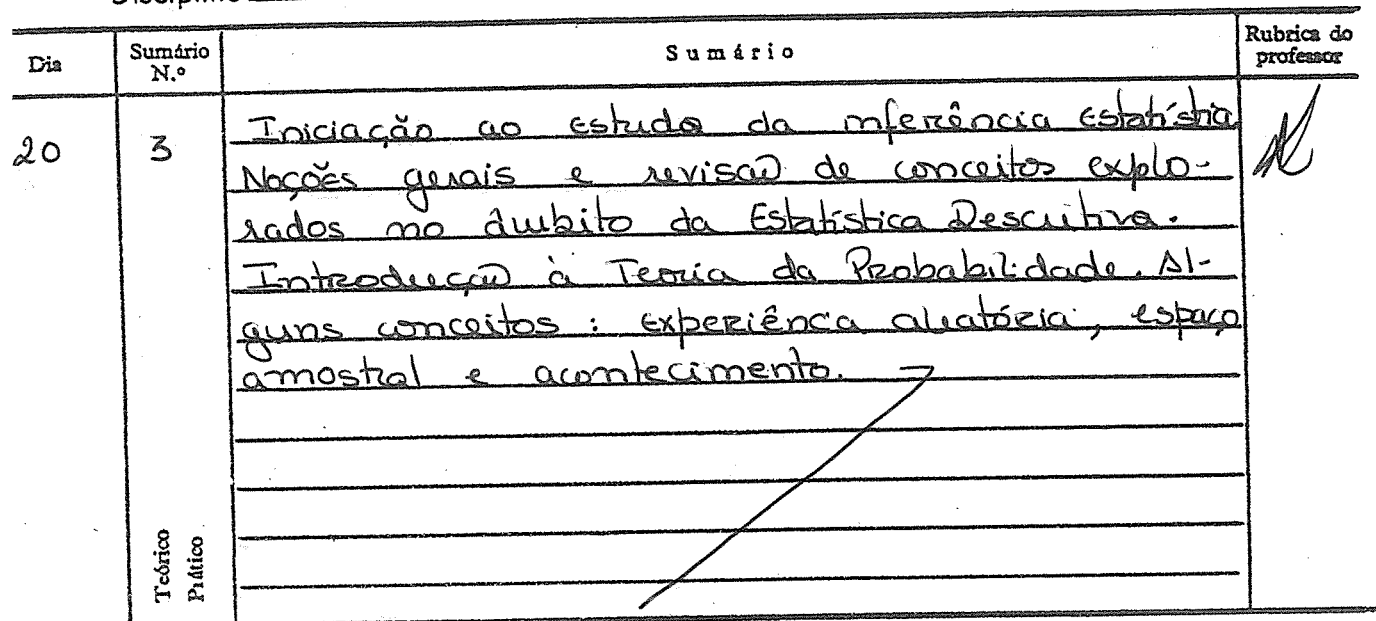 Dia Sumário N.º Sumário Rubrica do professor
20 3 Iniciação ao estudo da inferência Estatística
Noções gerais e revisão de conceitos explo-
rados no âmbito da Estatística Descritiva.
Introdução à Teoria da Probabilidade. Al-
guns conceitos : experiência aleatória, espaço
amostral e acontecimento.
Teórico
Prático